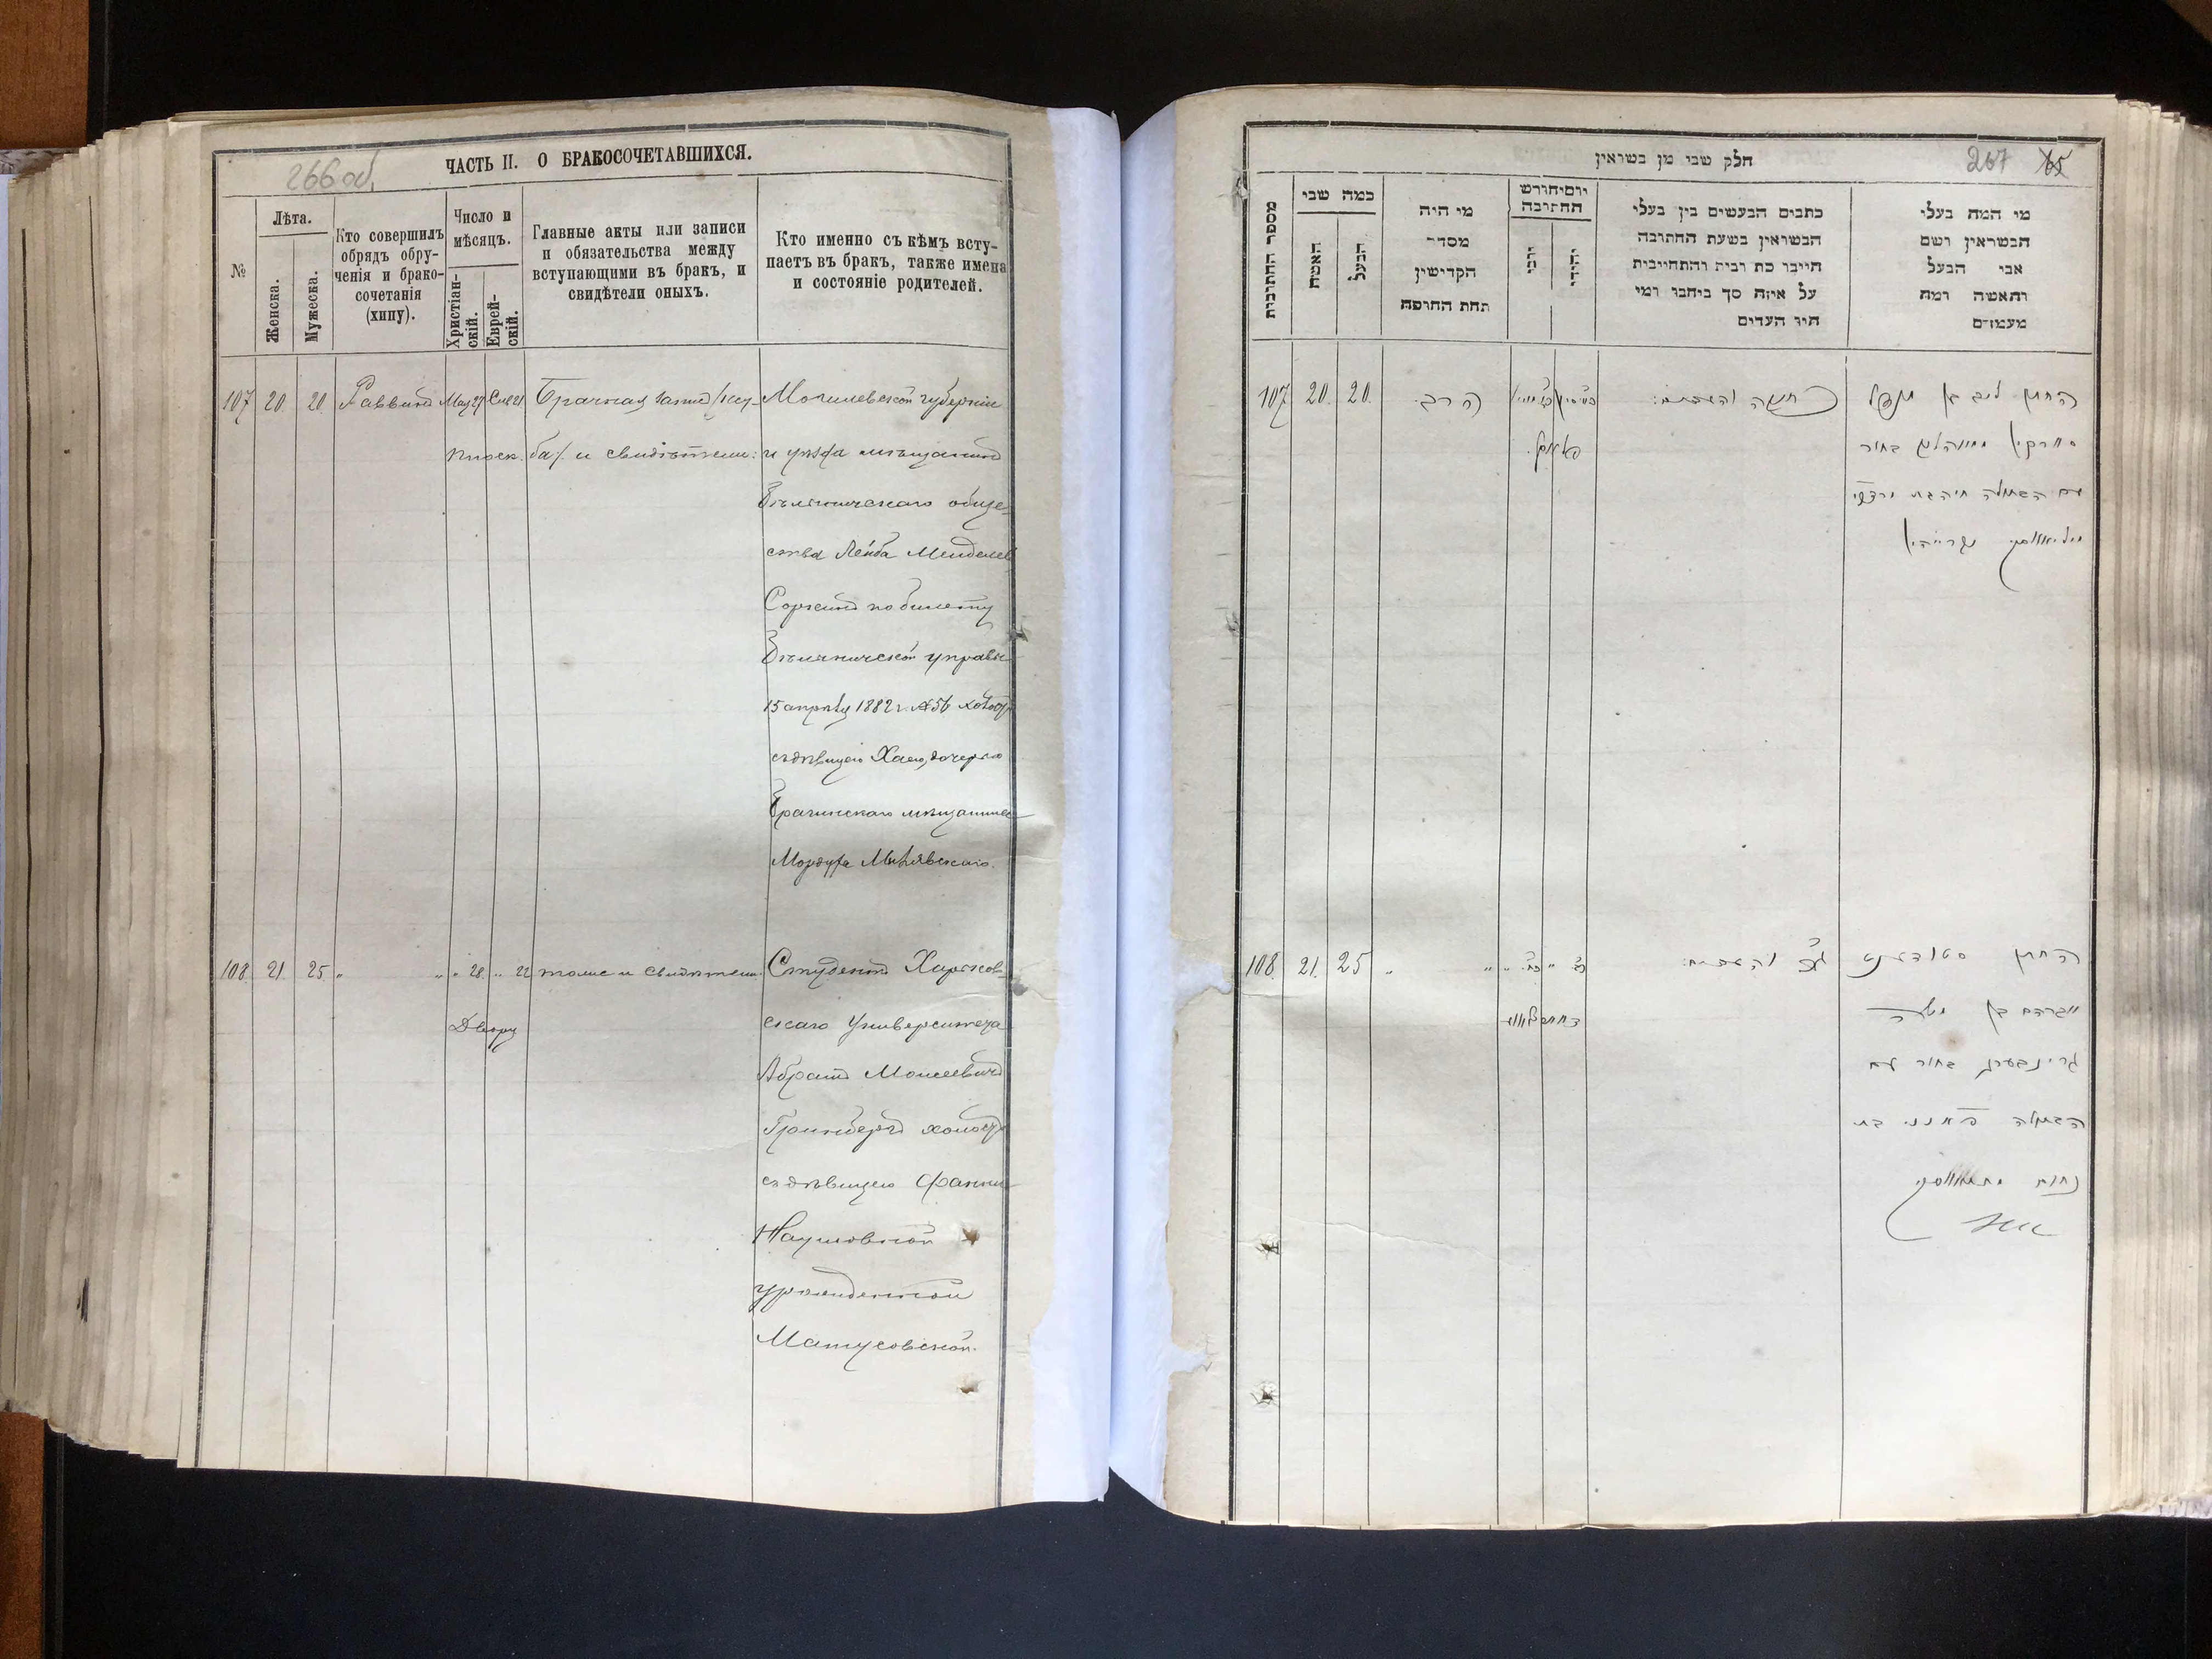 266 об.
ЧАСТЬ II. О БРАКОСОЧЕТАВШИХСЯ.
№
Лѣта.
Женска.
Мужеска.
Кто совершилъ
обрядъ обру-
ченія и брако-
сочетанія
(хипу).
Число и
мѣсяцъ.
Христіан-
скій.
Еврей-
скій.
Главные акты или записи
и обязательства между
вступающими въ бракъ, и
свидѣтели оныхъ.
Кто именно съ кѣмъ всту-
паетъ въ бракъ, также имена
и состояніе родителей.
107 20. 20. Раввинъ Мая 27 Сив 21 Брачная запис /кту- Могилевской губерніи
ба/. и свидѣтели: и уѣзда мѣщанинъ
Бѣлыническаго обще-
ства Лейба Менделев
Соркинъ по билету
Бѣлынической управы
15 апрѣля 1882 г. №56 холост
съ дѣвицею Хаею, дочерью
Брагинскаго мѣщанина
Мордуха
108. 21. 25. " " " 28. " 22 тоже и свидѣтели. Студентъ Харьков-
скаго Университета
Абрамъ Моисеевичъ
Гринбергъ холост
съ дѣвицею Фанни
Наумовной
урожденной
Матусовской.
267 65
חלק שני מן נשואין
מספר החתונית
כמה שני
האשה
הבעל
מי היה
מסדר
הקדישין
תחת החופה
יום וחודש
החתונה
כתבים הנעשים בין בעלי
הנשואין בשעת החתונה
היינו כת ובית והתחייבית
על איזה סך ביחבו ומי
היו העדים
מי המה בעלי
הנשואין ושם
אבי הבעל
והאשה ומה
מעמדם
107 20. 20. הרב. החתן ליב בן מנדל
סארקין בחור
עם הבתולה חיה בת
108. 21. 25 " " " החתן סטודענט
אברהם בן משה
גרינבערג בחור עם
הבתולה פאנני בת
נחום